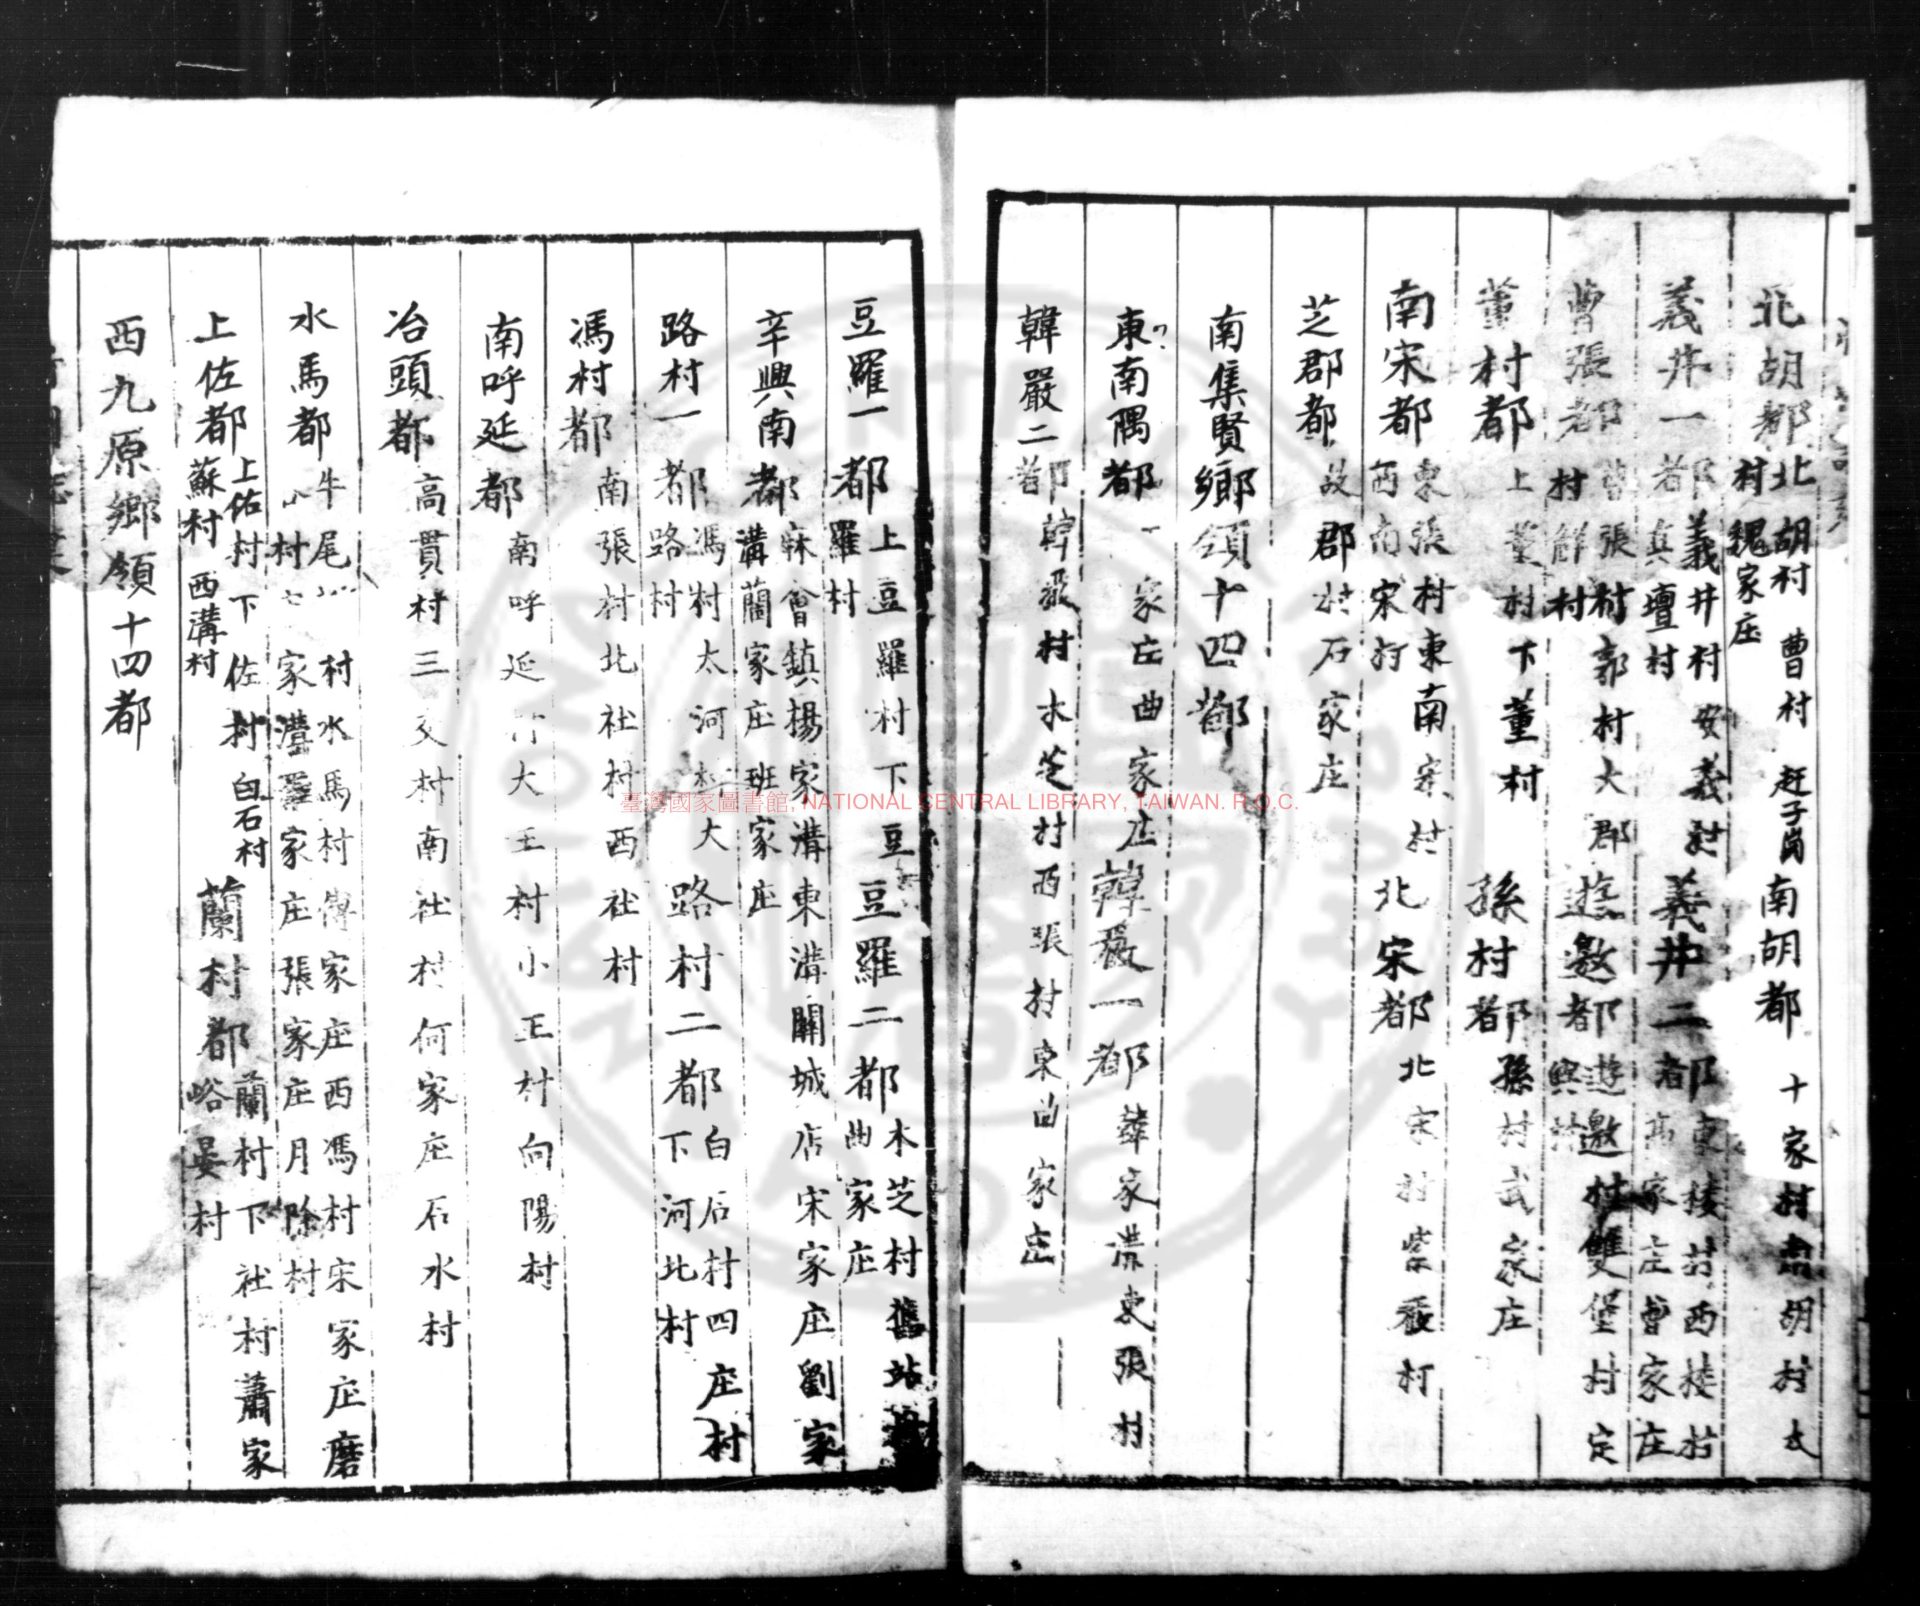 北胡都 北胡村 曹村 赶子崗 村 魏家庄 南胡都 十家村 南胡村 大
義井一都 義井村 安義村 真壇村 義井二都 東棱村 西棱村 高家庄 曹家庄
曹張都 曹張村 郭村 大郡 村 解村 遊邀都 遊邀村 雙堡村 定興村
董村都 上董村 下董村 孫村都 孫村 武家庄
南宋都 東張村 東南宋村 西南宋村 北宋都 北宋村 紫薇村
芝郡都 故郡村 石家庄
南集賢鄉領十四都
東南隅都 家庄 曲家庄 韓巖一都 韓家溝 東張村
韓嚴二都 韓嚴村 木芝村 西張村 東曲家庄
豆羅一都 上豆羅村 下豆羅村 豆羅二都 木芝村 舊站 曲家庄
辛興南都 麻會鎮 楊家溝 東溝 關城店 宋家庄 劉家溝 蘭家庄 班家庄
路村一都 馮村 太河村 大路村 路村二都 白石村 四庄村 下河北村
馮村都 南張村 北社村 西社村
南呼延都 南呼延村 大王村 小王村 向陽村
冶頭都 高貫村 三交村 南社村 何家庄 石水村
水馬都 牛尾 村 水馬村 傅家庄 西馮村 宋家庄 磨 村 家灣 羅家庄 張家庄 月除村
上佐都 上佐村 下佐村 白石村 蘇村 西溝村 蘭村都 蘭村 下社村 蕭家峪 晏村
西九原鄉領十四都
臺灣國家圖書館, NATIONAL CENTRAL LIBRARY, TAIWAN. R.O.C.